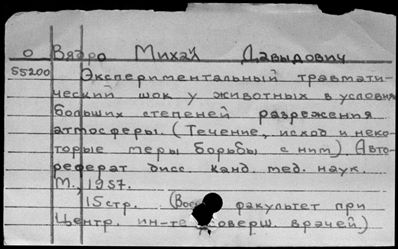 О Вядро Михай Давыдович
55200 Экспериментальный травмати-
ческий шок у животных в условия
больших степеней разрежения
атмосферы. (Течение, исход и неко-
торые меры борьбы с ним). Авто-
реферат дисс. канд. мед. наук.
М., 1957.
15 стр. (Вое факультет при
Центр. ин-те соверш. врачей.)